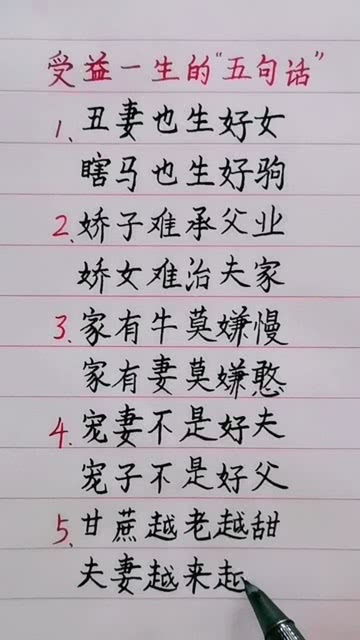 受益一生的“五句话”
1、丑妻也生好女
瞎马也生好驹
2、娇子难承父业
娇女难治夫家
3、家有牛莫嫌慢
家有妻莫嫌憨
4、宠妻不是好夫
宠子不是好父
5、甘蔗越老越甜
夫妻越来